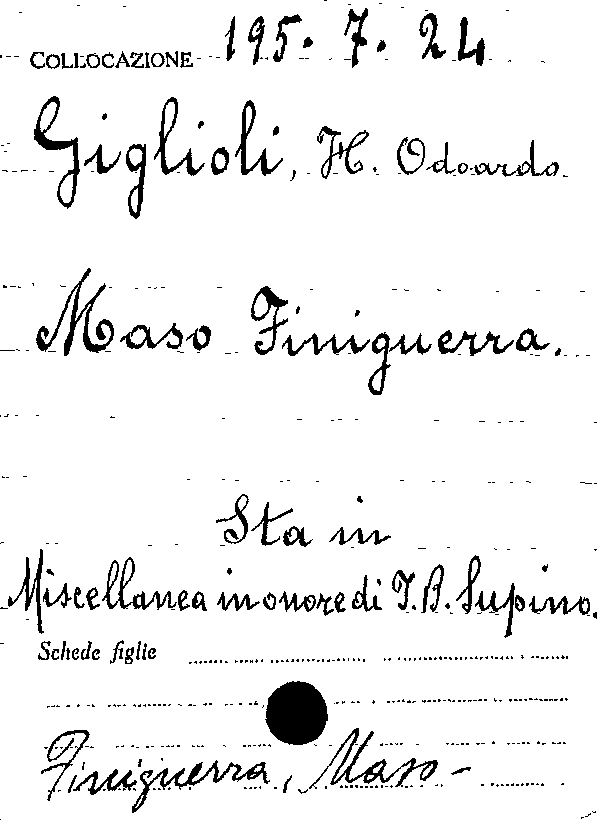 COLLOCAZIONE 195. 7. 24
Giglioli, H. Odoardo.
Maso Finiguerra.
Sta in
Miscellanea in onore di I. B. Supino.
Schede figlie
Finiguerra, Maso -